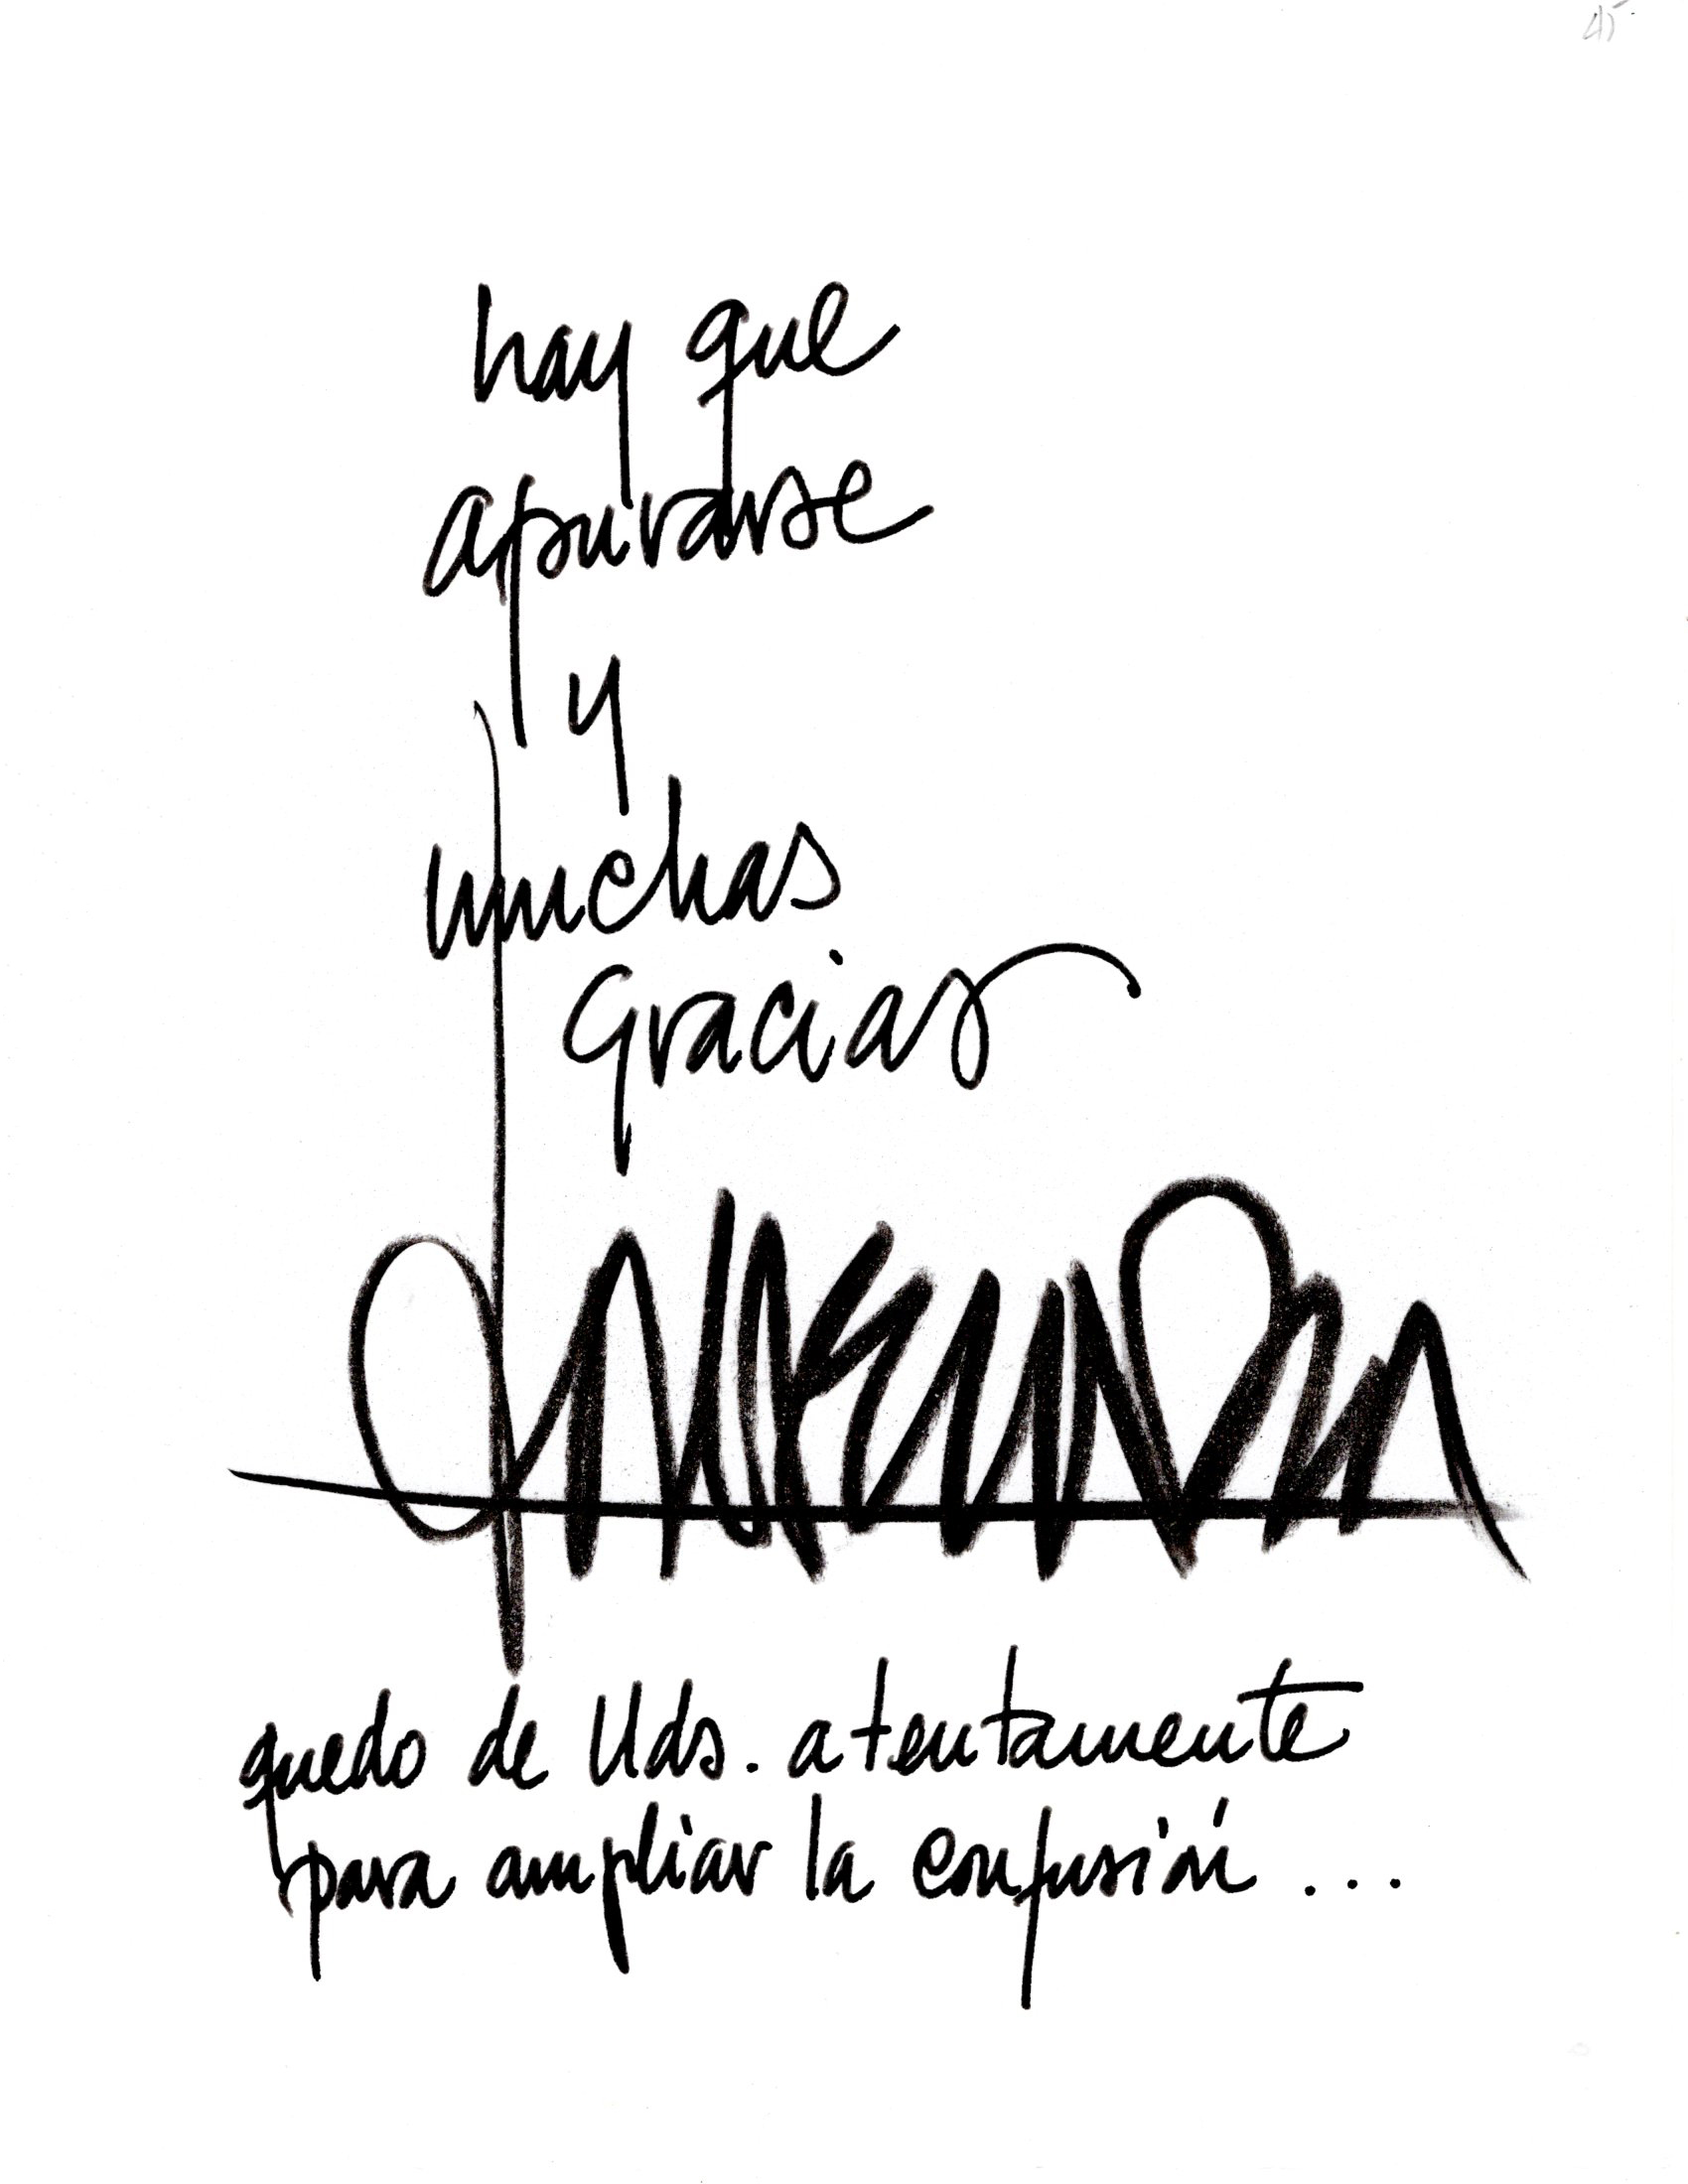 45
hay que
apurarse
y
muchas
gracias
quedo de Uds. atentamente
para ampliar la confusión...